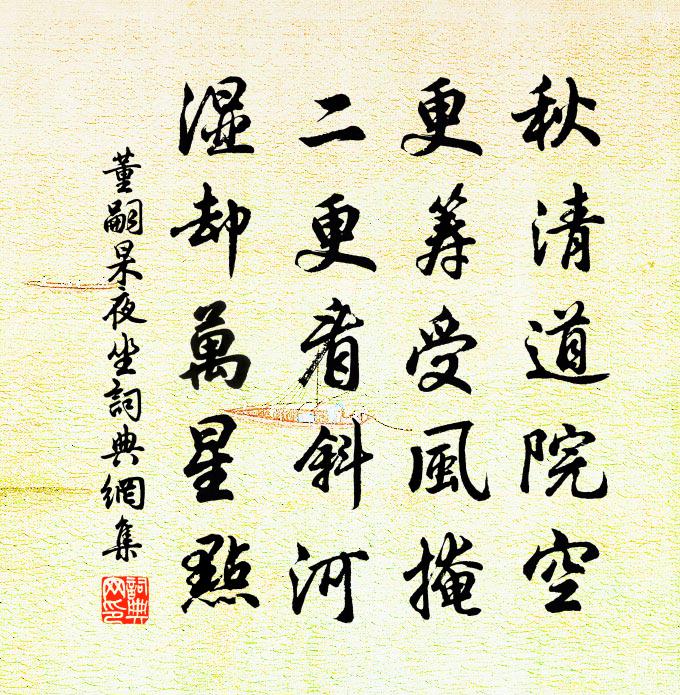 秋清道院空
更筹受風掩
二更看斜河
濕却萬星點
董嗣杲夜坐詞典網集
詞典網印